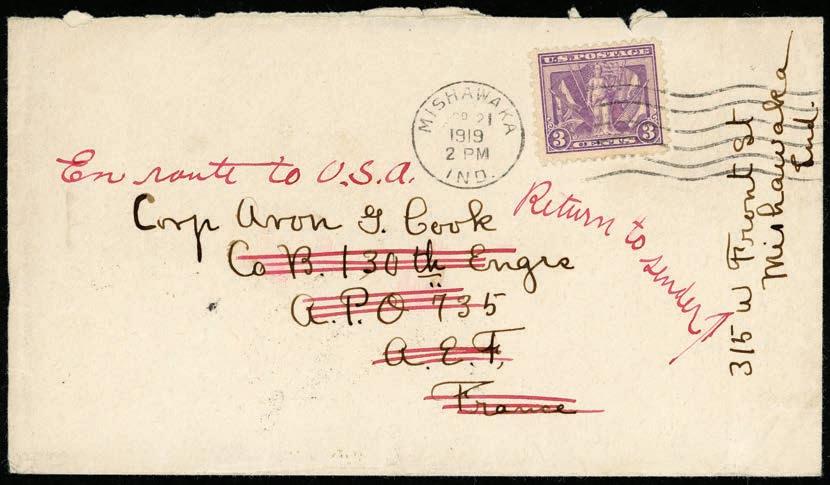 U.S. POSTAGE
3 3
CENTS
MISHAWAKA
21
1919
2 PM
IND.
En route to U.S.A.
Corp Avon G. Cook
Co B. 130th Engrs
A.P.O 735
A.E.F,
France
Return to sender
315 W Front St
Mishawaka
Ind.